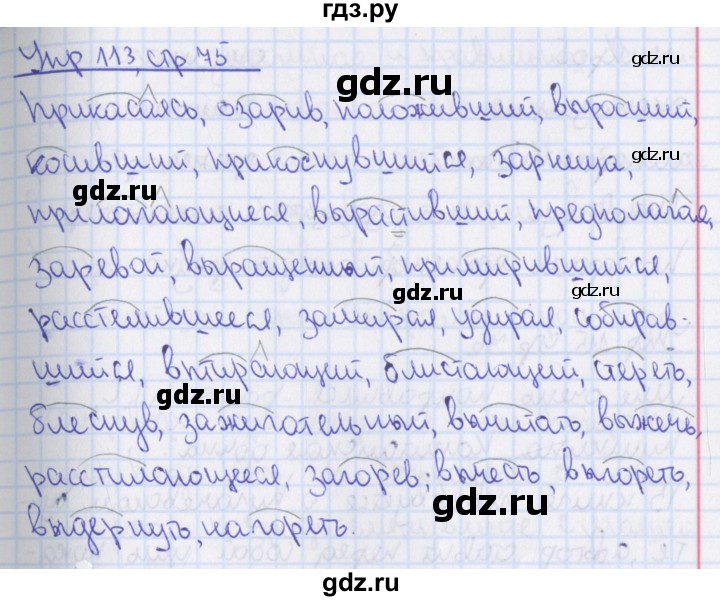 гдз.ру
Упр 113, стр 75
gdz.ru
gdz.ru
Прикасаясь, озарив, положивший, выросший,
косивший, прикоснувшийся, зарница,
gdz.ru
gdz.ru
прилагающиеся, вырастивший, предполагая,
gdz.ru
заревой, выращенный, примирившийся,
gdz.ru
gdz.ru
расстелившееся, замирая, удирая, собирав-
шийся, втирающий, блистающий, стереть,
gdz.ru
блеснув, зажигательный, вычитать, выжечь,
расстилающееся, загорев, вычесть, выгореть,
gdz.ru
выдернуть, нагореть.
gdz.ru